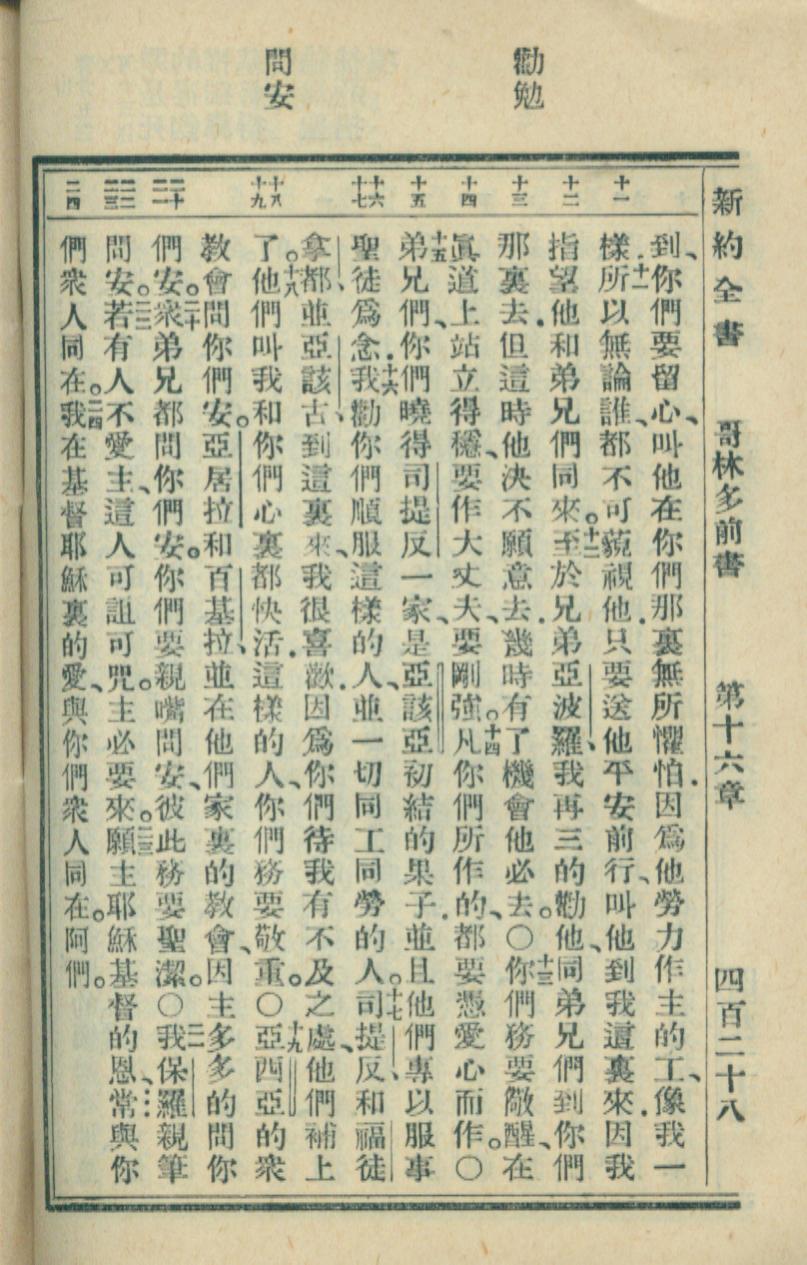 新約全書 哥林多前書 第十六章 四百二十八
勸勉
問安
十一
十二
十三
十四
十五
十六 十七
十八 十九
二十 二一
二二 二三
二四
到、你們要留心、叫他在你們那裏無所懼怕.因爲他勞力作主的工、像我一
樣.十一所以無論誰、都不可藐視他.只要送他平安前行、叫他到我這裏來.因我
指望他和弟兄們同來。十二至於兄弟亞波羅、我再三的勸他、同弟兄們到你們
那裏去.但這時他決不願意去.幾時有了機會他必去。〇十三你們務要儆醒、在
眞道上站立得穩、要作大丈夫、要剛強。十四凡你們所作的、都要憑愛心而作。〇
十五弟兄們、你們曉得司提反一家、是亞該亞初結的果子.並且他們專以服事
聖徒爲念.十六我勸你們順服這樣的人、並一切同工同勞的人。十七司提反、和福徒
拿都、並亞該古、到這裏來、我很喜歡.因爲你們待我有不及之處、他們補上
了。十八他們叫我和你們心裏都快活.這樣的人、你們務要敬重。〇十九亞西亞的衆
教會問你們安。亞居拉和百基拉、並在他們家裏的教會、因主多多的問你
們安。二十衆弟兄都問你們安。你們要親嘴問安、彼此務要聖潔。〇二一我保羅親筆
問安。二二若有人不愛主、這人可詛可咒。主必要來。二三願主耶穌基督的恩、常與你
們衆人同在。二四我在基督耶穌裏的愛、與你們衆人同在。阿們。